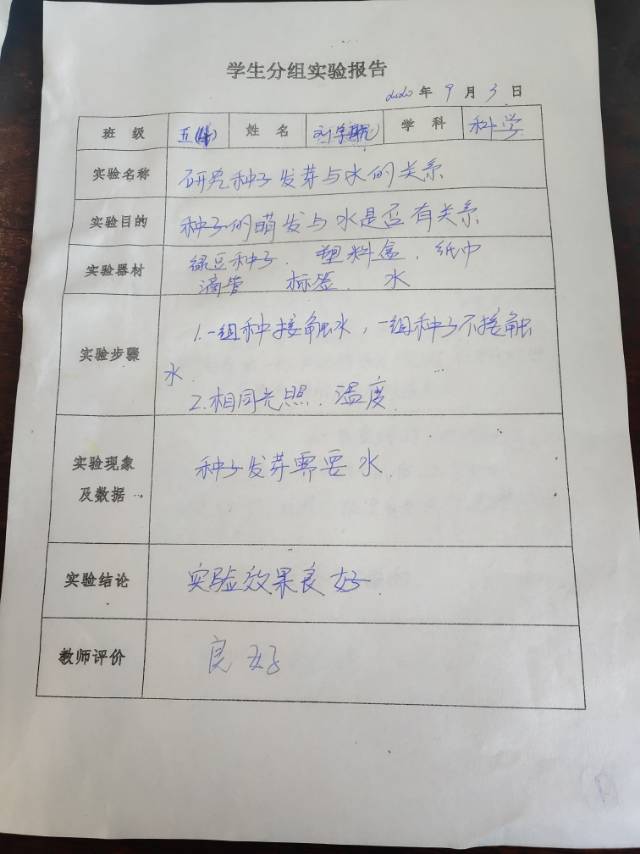 学生分组实验报告
2020年9月3日
班 级 五 姓 名 刘宇航 学 科 科学
实验名称 研究种子发芽与水的关系
实验目的 种子的萌发与水是否有关系
实验器材 绿豆种子、塑料盒、纸巾
滴管 标签、水
实验步骤 1.一组种接触水,一组种子不接触
水
2.相同光照、温度
实验现象
及数据 种子发芽需要水.
实验结论 实验效果良好.
教师评价 良好